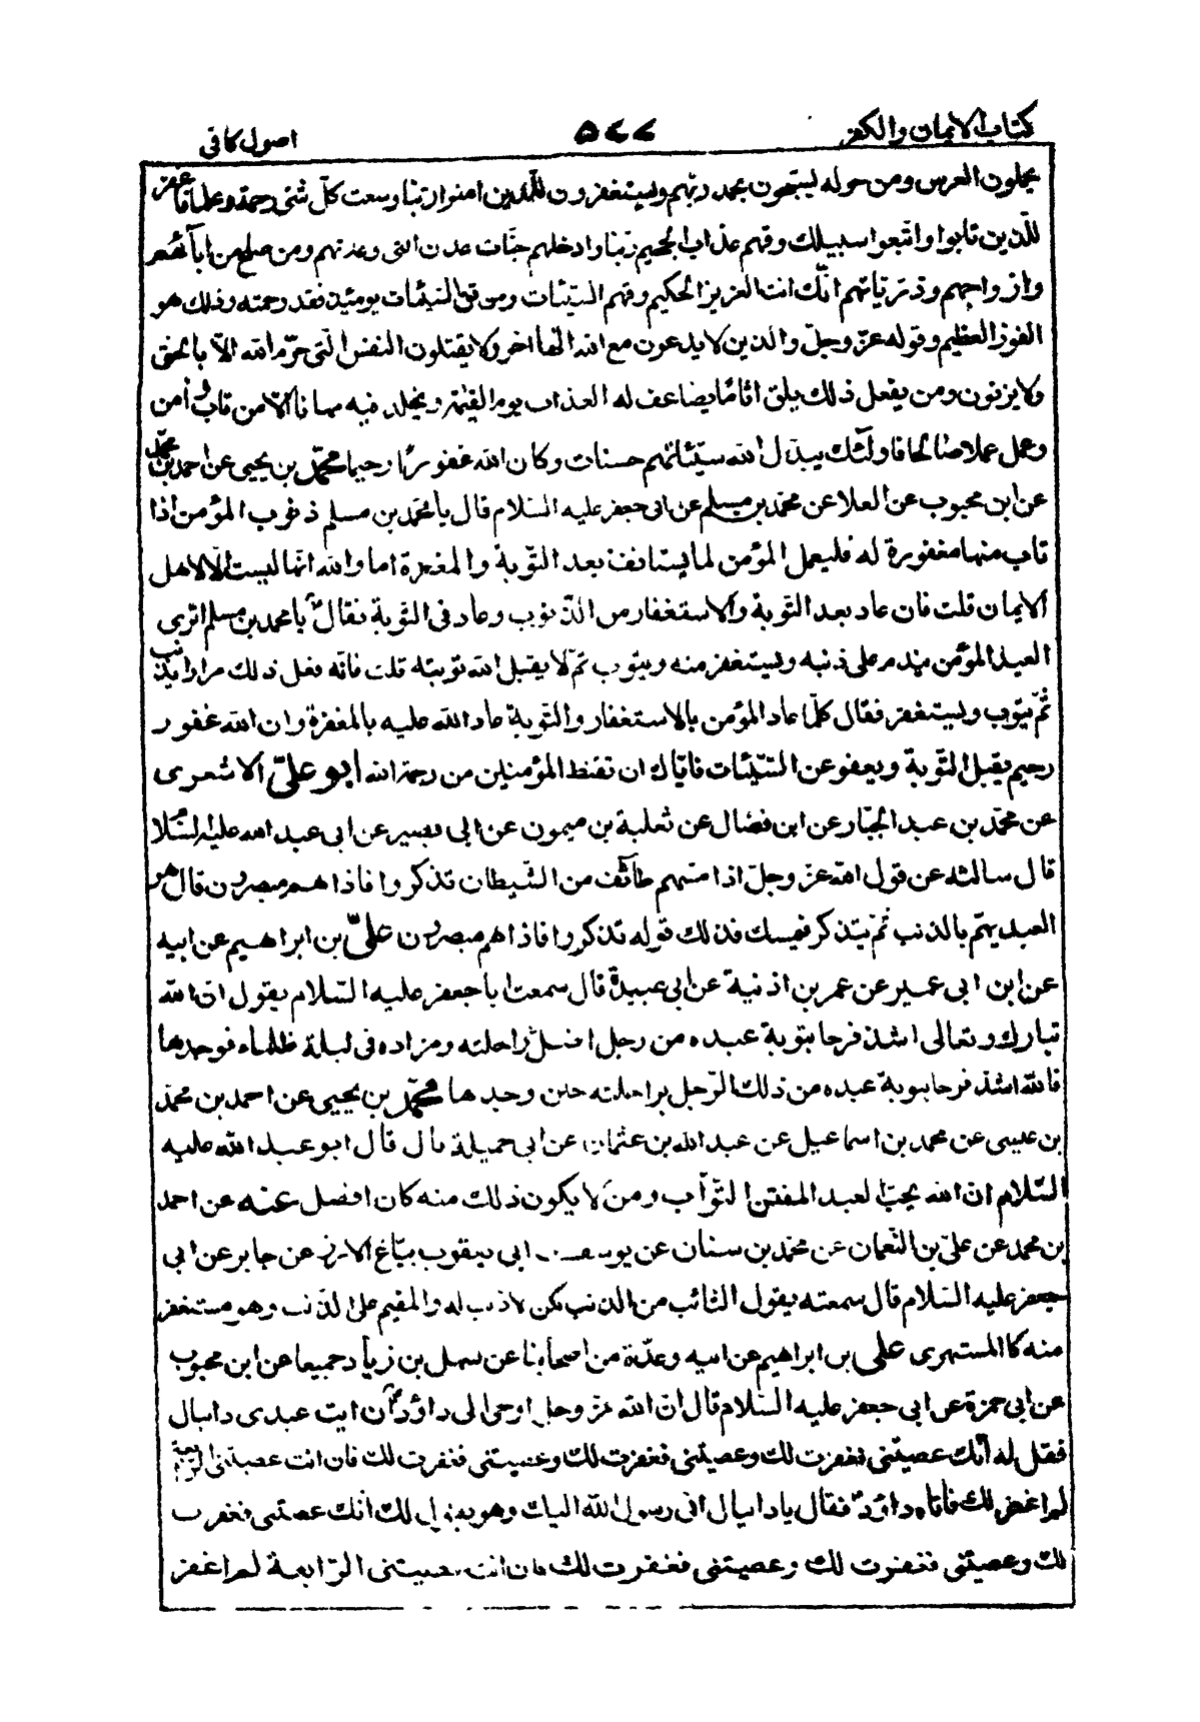 كتاب الايمان والكفر ٥٤٧ اصول كافى
يحملون العرش ومن حوله يسبحون بحمد ربهم ويستغفرون للذين امنوا ربنا وسعت كل شئ رحمة وعلما فاغفر
للذين تابوا واتبعوا سبيلك وقهم عذاب الجحيم ربنا وادخلهم جنات عدن التى وعدتهم ومن صلح من ابائهم
وازواجهم وذرياتهم انك انت العزيز الحكيم وقهم السيئات ومن تق السيئات يومئذ فقد رحمته وذلك هو
الفوز العظيم وقوله عز وجل والذين لا يدعون مع الله الها اخر ولا يقتلون النفس التى حرم الله الا بالحق
ولا يزنون ومن يفعل ذلك يلق اثاما يضاعف له العذاب يوم القيمة ويخلد فيه مهانا الا من تاب وامن
وعمل عملا صالحا فاولئك يبدل الله سيئاتهم حسنات وكان الله غفورا رحيما محمد بن يحيى عن احمد بن محمد
عن ابن محبوب عن العلا عن محمد بن مسلم عن ابى جعفر عليه السلام قال يا محمد بن مسلم ذنوب المؤمن اذا
تاب منها مغفورة له فليعمل المؤمن لما يستانف بعد التوبة والمغفرة اما والله انها ليست الا لاهل
الايمان قلت فان عاد بعد التوبة والاستغفار من الذنوب وعاد فى التوبة فقال يا محمد بن مسلم اترى
العبد المؤمن يندم على ذنبه ويستغفر منه ويتوب ثم لا يقبل الله توبته قلت فانه فعل ذلك مرارا يذنب
ثم يتوب ويستغفر فقال كلما عاد المؤمن بالاستغفار والتوبة عاد الله عليه بالمغفرة وان الله غفور
رحيم يقبل التوبة ويعفو عن السيئات فاياك ان تقنط المؤمنين من رحمة الله ابو على الاشعرى
عن محمد بن عبد الجبار عن ابن فضال عن ثعلبة بن ميمون عن ابى بصير عن ابى عبد الله عليه السلا
قال سالته عن قول الله عز وجل اذا مسهم طائف من الشيطان تذكروا فاذا هم مبصرون قال هو
العبد يهم بالذنب ثم يتذكر فيمسك فذلك قوله تذكروا فاذا هم مبصرون على بن ابراهيم عن ابيه
عن ابن ابى عمير عن عمر بن اذنية عن ابى عبيدة قال سمعت ابا جعفر عليه السلام يقول ان الله
تبارك وتعالى اشد فرحا بتوبة عبده من رجل اضل راحلته ومزاده فى ليلة ظلماء فوجدها
فالله اشد فرحا بتوبة عبده من ذلك الرجل براحلته حين وجدها محمد بن يحيى عن احمد بن محمد
بن عيسى عن محمد بن اسماعيل عن عبد الله بن عثمان عن ابى جميلة قال قال ابو عبد الله عليه
السلام ان الله يحب العبد المفتن التواب ومن لا يكون ذلك منه كان افضل عنه عن احمد
بن محمد عن على بن النعمان عن محمد بن سنان عن يوسف ابى يعقوب بياع الارز عن جابر عن ابى
جعفر عليه السلام قال سمعته يقول التائب من الذنب كمن لا ذنب له والمقيم على الذنب وهو مستغفر
منه كالمستهزى على بن ابراهيم عن ابيه وعدة من اصحابنا عن سهل بن زياد جميعا عن ابن محبوب
عن ابى حمزة عن ابى جعفر عليه السلام قال ان الله عز وجل اوحى الى داؤد ان ايت عبدى دانيال
فقل له انك عصيتنى فغفرت لك وعصيتنى فغفرت لك وعصيتنى فغفرت لك فان انت عصيتنى الرابعة
لم اغفر لك فاتاه داؤد فقال يا دانيال انى رسول الله اليك وهو يقول لك انك عصيتنى فغفرت
لك وعصيتنى فغفرت لك وعصيتنى فغفرت لك فان انت عصيتنى الرابعة لم اغفر